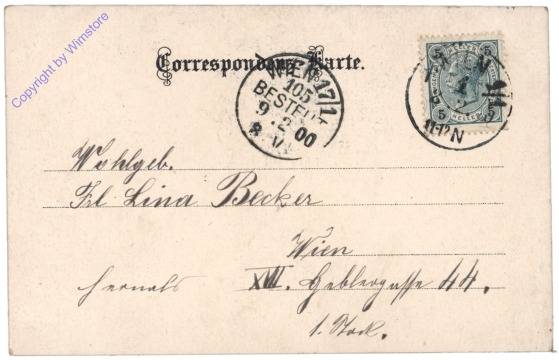 Copyright by Wimstore
Correspondenz-Karte.
WIEN 17/1
105
BESTELLT
9.2.00
5 5
5 5
HELLER
WIEN
11-12N
Wohlgeb.
Frl Lina Becker
Wien
Hernals XVII. Geblergasse 44.
1. Stock.